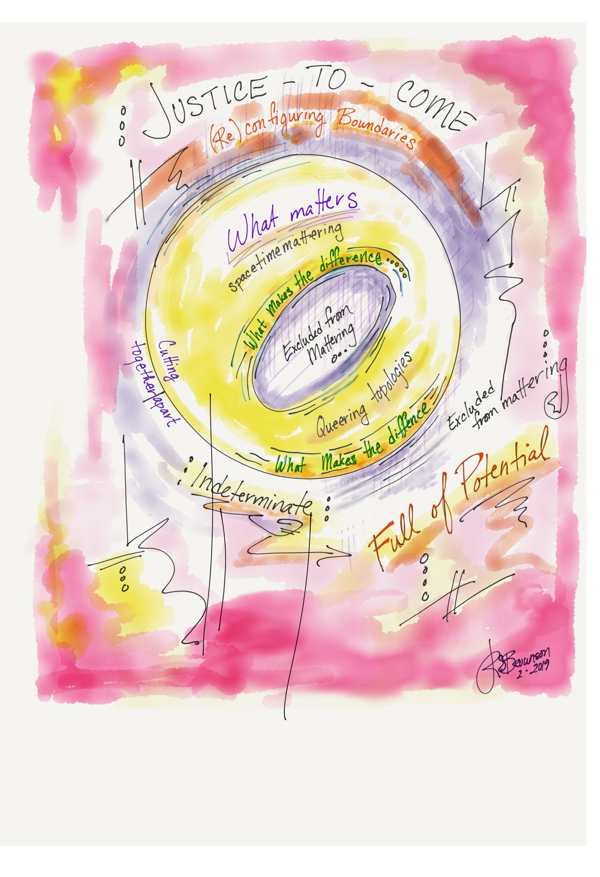 JUSTICE-TO-COME
(Re)configuring Boundaries
What matters
spacetimemattering
What Makes the difference
Excluded from
Mattering
Cutting
together/apart
Queering topologies
What Makes the diffence
Excluded
from mattering
Indeterminate
Full of Potential
Brownson
2-2019